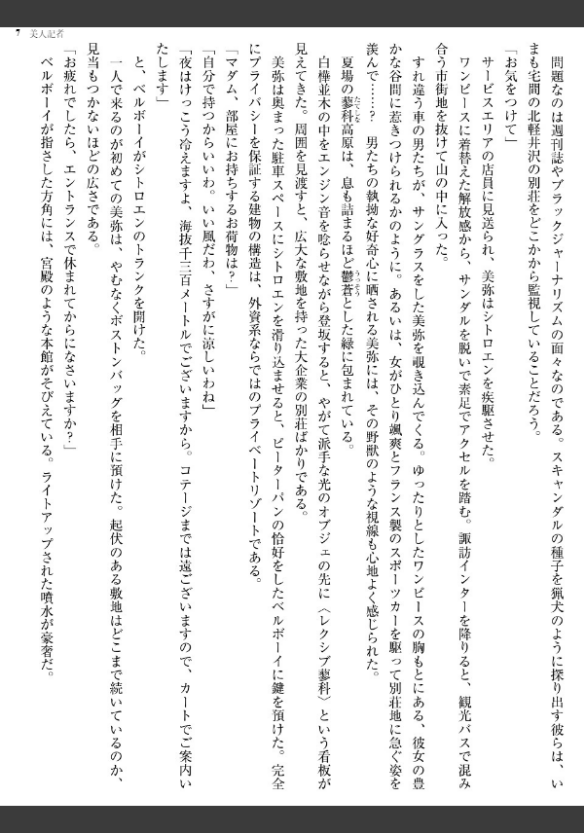 7 美人記者
問題なのは週刊誌やブラックジャーナリズムの面々なのである。スキャンダルの種子を猟犬のように探り出す彼らは、い
まも宅間の北軽井沢の別荘をどこかから監視していることだろう。
「お気をつけて」
サービスエリアの店員に見送られ、美弥はシトロエンを疾駆させた。
ワンピースに着替えた解放感から、サンダルを脱いで素足でアクセルを踏む。諏訪インターを降りると、観光バスで混み
合う市街地を抜けて山の中に入った。
すれ違う車の男たちが、サングラスをした美弥を覗き込んでくる。ゆったりとしたワンピースの胸もとにある、彼女の豊
かな谷間に惹きつけられるかのように。あるいは、女がひとり颯爽とフランス製のスポーツカーを駆って別荘地に急ぐ姿を
羨んで……？　男たちの執拗な好奇心に晒される美弥には、その野獣のような視線も心地よく感じられた。
夏場の蓼科高原は、息も詰まるほど鬱蒼とした緑に包まれている。
白樺並木の中をエンジン音を唸らせながら登坂すると、やがて派手な光のオブジェの先に〈レクシブ蓼科〉という看板が
見えてきた。周囲を見渡すと、広大な敷地を持った大企業の別荘ばかりである。
美弥は奥まった駐車スペースにシトロエンを滑り込ませると、ピーターパンの恰好をしたベルボーイに鍵を預けた。完全
にプライバシーを保証する建物の構造は、外資系ならではのプライベートリゾートである。
「マダム、部屋にお持ちするお荷物は？」
「自分で持つからいいわ。いい風だわ、さすがに涼しいわね」
「夜はけっこう冷えますよ、海抜千三百メートルでございますから。コテージまでは遠ございますので、カートでご案内い
たします」
と、ベルボーイがシトロエンのトランクを開けた。
一人で来るのが初めての美弥は、やむなくボストンバッグを相手に預けた。起伏のある敷地はどこまで続いているのか、
見当もつかないほどの広さである。
「お疲れでしたら、エントランスで休まれてからになさいますか？」
ベルボーイが指さした方角には、宮殿のような本館がそびえている。ライトアップされた噴水が豪奢だ。